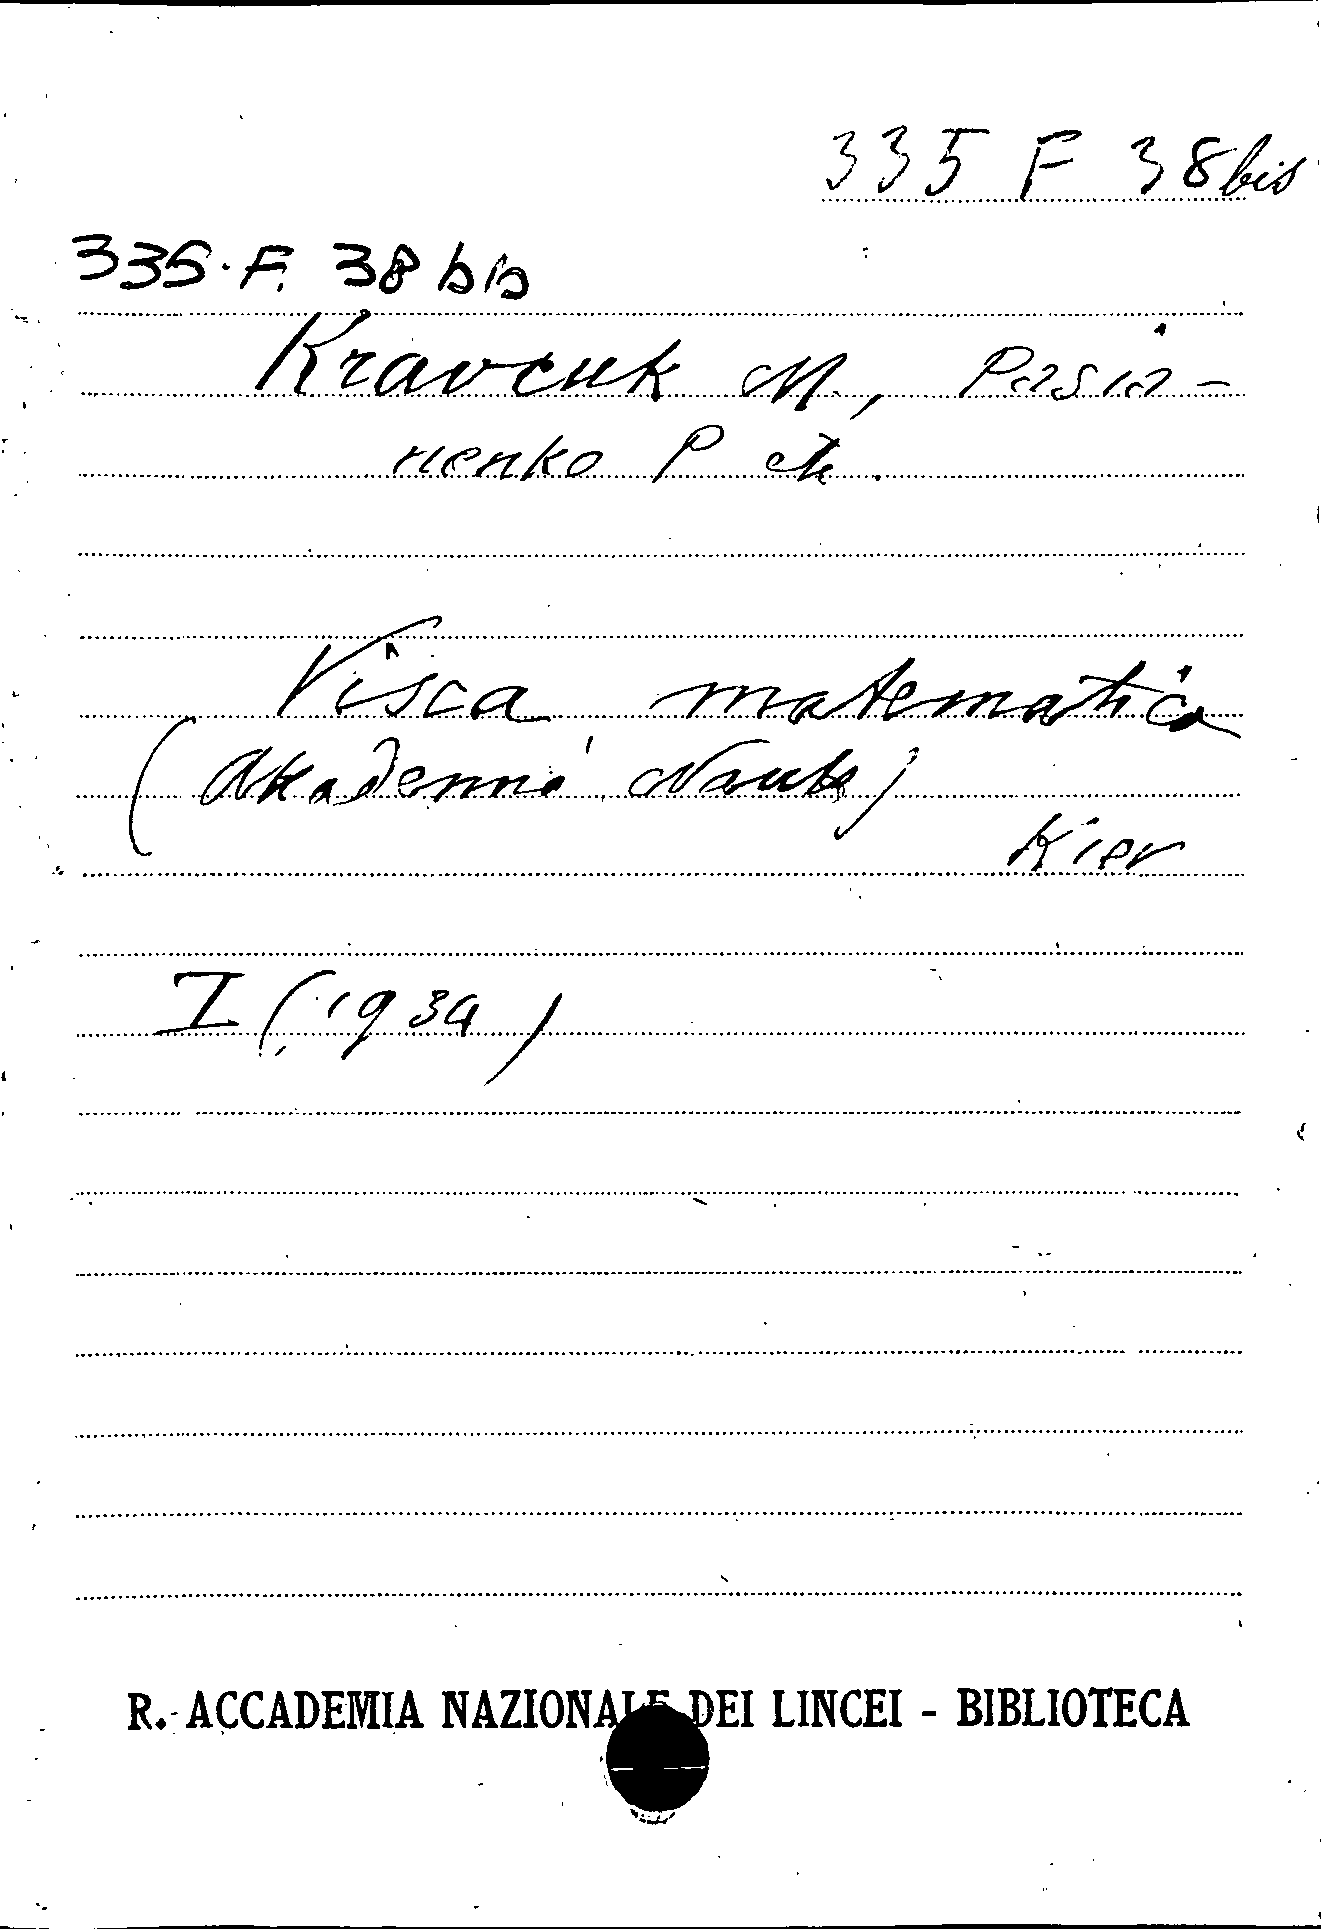 335 F 38 bis
335. F. 38 bis
Kravcuk M., Pasia-
nenko P et.
Visca matematica
(Akademie Nauk)
Kiev
I (1934)
R. ACCADEMIA NAZIONALE DEI LINCEI - BIBLIOTECA